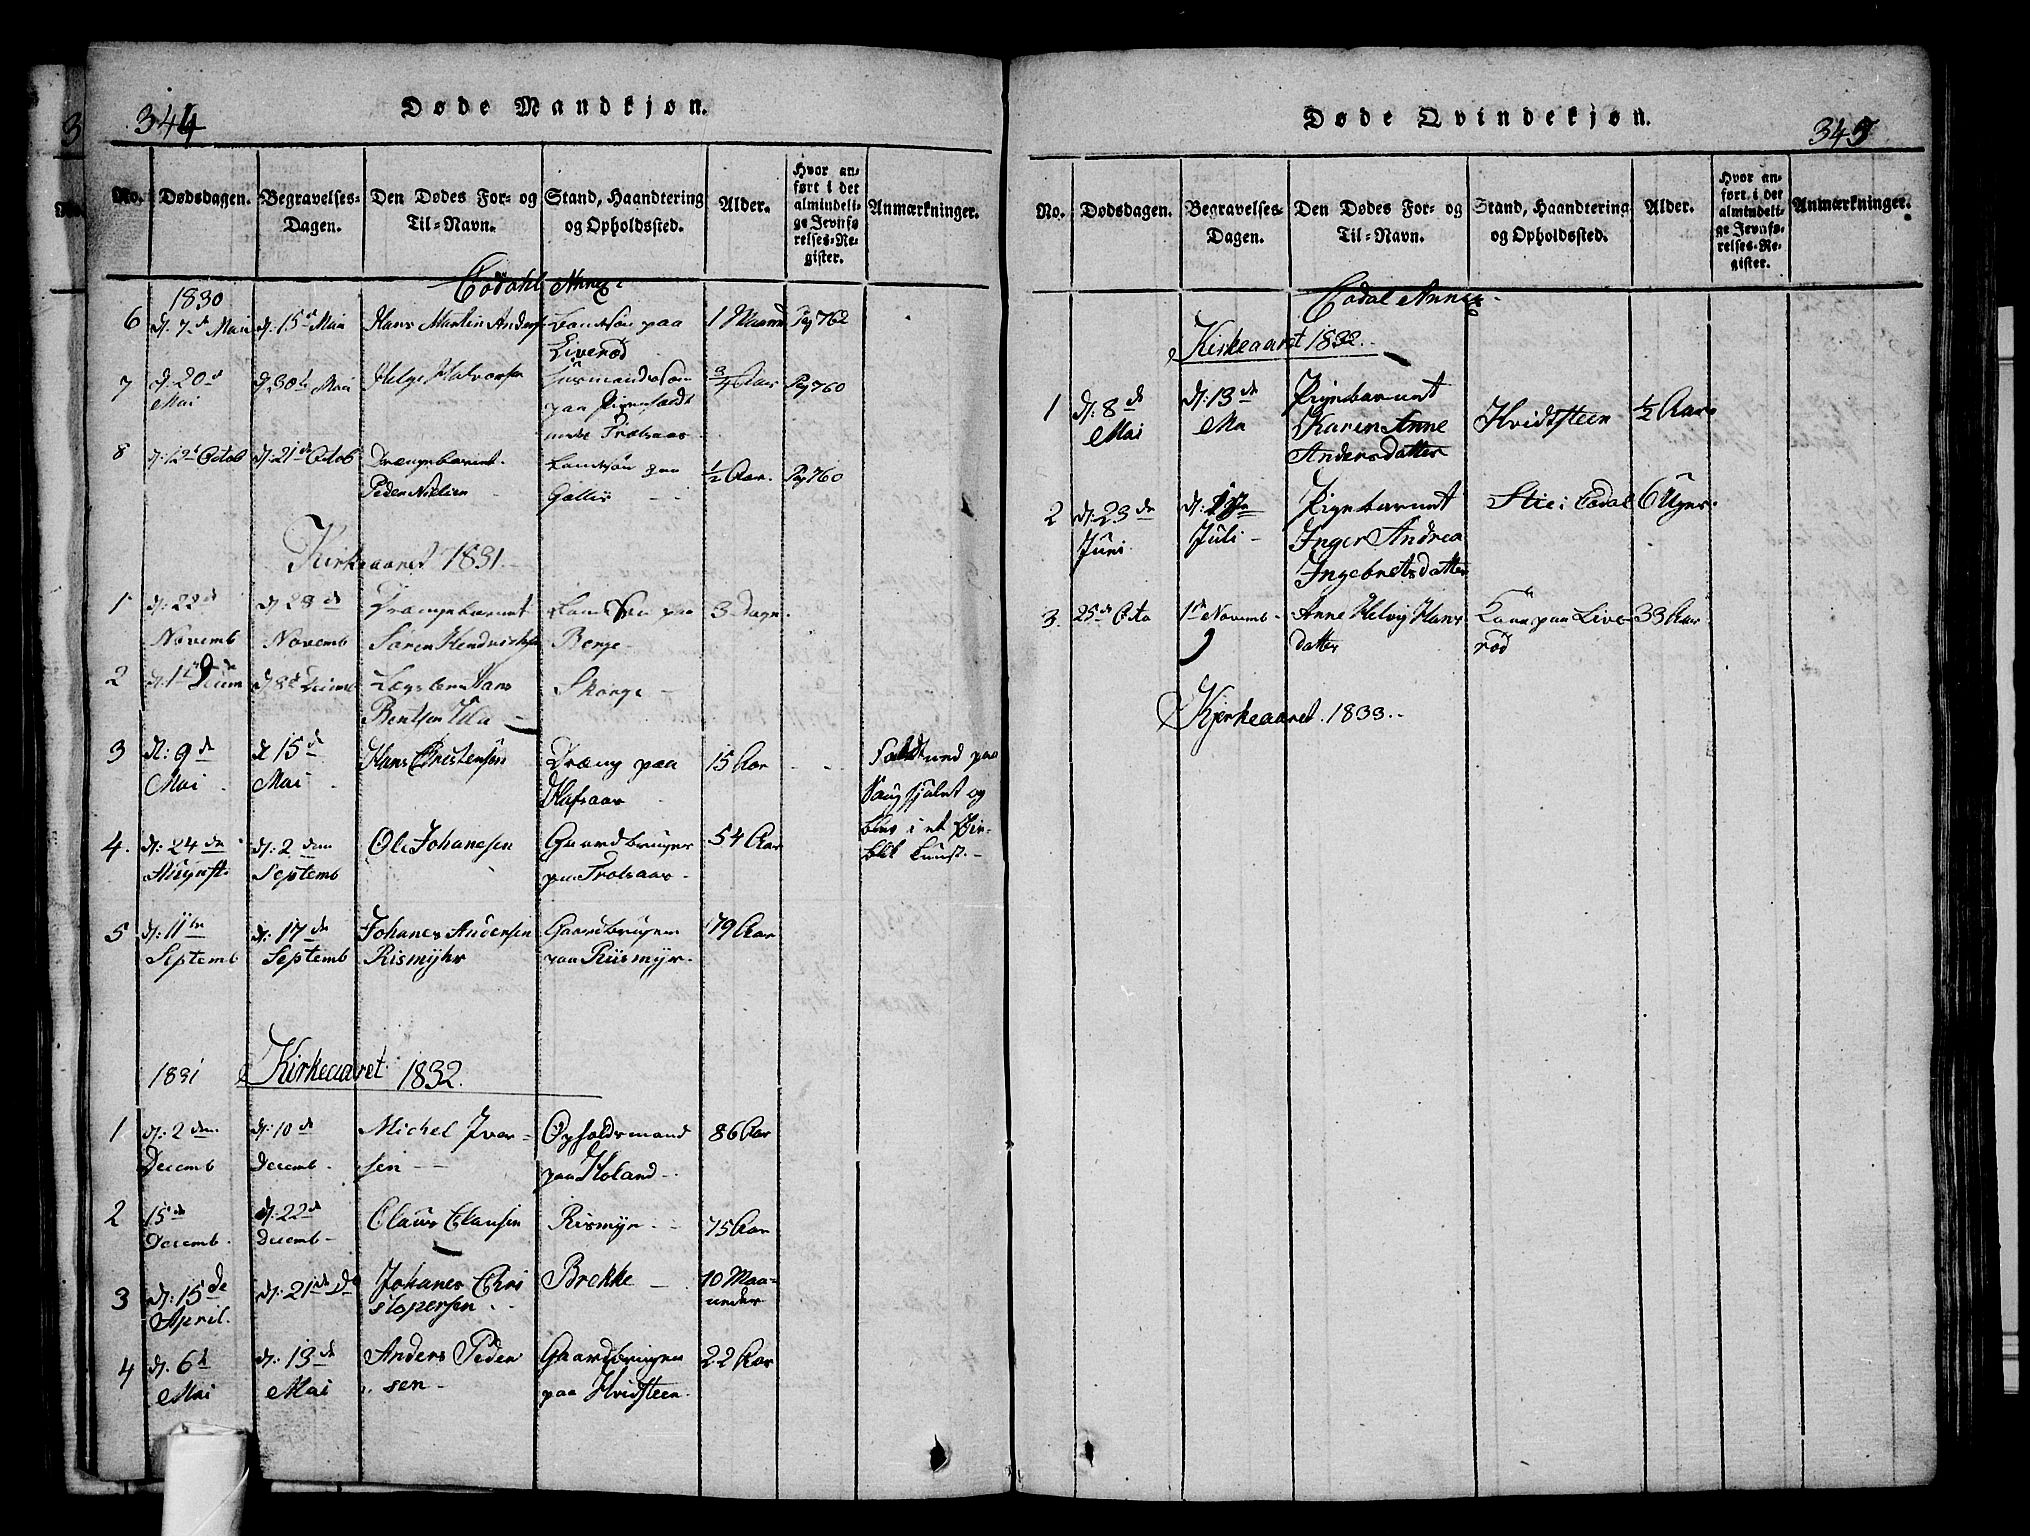 344
Døde Mandkjøn.
No. Dødsdagen. Begravelses-Dagen. Den Dødes For- og Til-Navn. Stand, Haandtering og Opholdssted. Alder. Hvor anført i det almindelige Jevnførelses-Register. Anmærkninger.
Eodahl Annex
1830
6 d. 7de Mai d. 15de Mai Hans Martin Anders Landsøn paa 1 Maaned Pag 762
Liverød
7 d. 20de Mai d. 30te Mai Helge Halvorsen Huusmandssøn 3/4 Aar Pag 760
paa
8 d. 12te Octob d. 21de Octob Drængebarnet Landsøn paa 1/2 Aar. Pag 760
Peder Nielsen
Kirkeaaret 1831.
1 d: 22de d. 28de Drængebarnet paa 3 Dage.
Novemb Novemb Søren Berge
2 d. 1ste Decemb d. 8de Decemb Hans Skorge
Bentsen
3 d: 9de d 15de Hans Christensen Dræng paa 15 Aar
Mai Mai
4. d: 24de d. 2den Ole Johanesen Gaardbruger 54 Aar
August Septemb paa Trolsaas
5 d: 11te d: 17de Johanes Andersen Gaardbruger 79 Aar
Septemb Septemb Rismyhr paa Riismyr
1831 Kirkeaaret 1832.
1 d. 2den d: 10de Michel Iver- Opholdsmand 86 Aar
Decemb Decemb. sen paa Holand
2 15de d. 22de Olaus Clausen Rismyr 75 Aar
Decemb. Decemb
3 d: 15de d: 21de Do Johanes Chri Brekke 10 Maa-
April. stopersen neder
4 d. 6te d. 13de Anders Peder Gaardbruger 22 Aar
Mai Mai sen paa Hvidsteen
345
Døde Qvindekjøn.
No. Dødsdagen. Begravelses-Dagen. Den Dødes For- og Til-Navn. Stand, Haandtering og Opholdssted. Alder. Hvor anført i det almindelige Jevnførelses-Register. Anmærkninger.
Eodal Annex
Kirkeaaret 1832.
1 d. 8de d: 13de Pigebarnet Hvidsteen 1/2 Aar
Mai Ma Karen Anne
Andersdatter
2 d. 23de d: 1ste Pigebarnet Stie i Eodal 6 Uger.
Juni. Juli Inger Andrea
Ingebretsdatter
3. 25de Octo 1ste Novemb Anne Helvig Hans Kone paa Live- 33 Aar
datter rød
Kjerkeaaret. 1833.